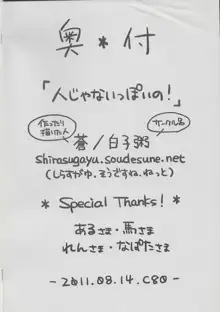 奥*付
「人じゃないっぽいの!」
作ったり描いた人
サークル名
蒼/白子粥
shirasugayu.soudesune.net
(しらすがゆ.そうですね.ねっと)
* Special Thanks! *
あるさま・馬さま
れんさま・なぽたさま
-2011.08.14.C80-